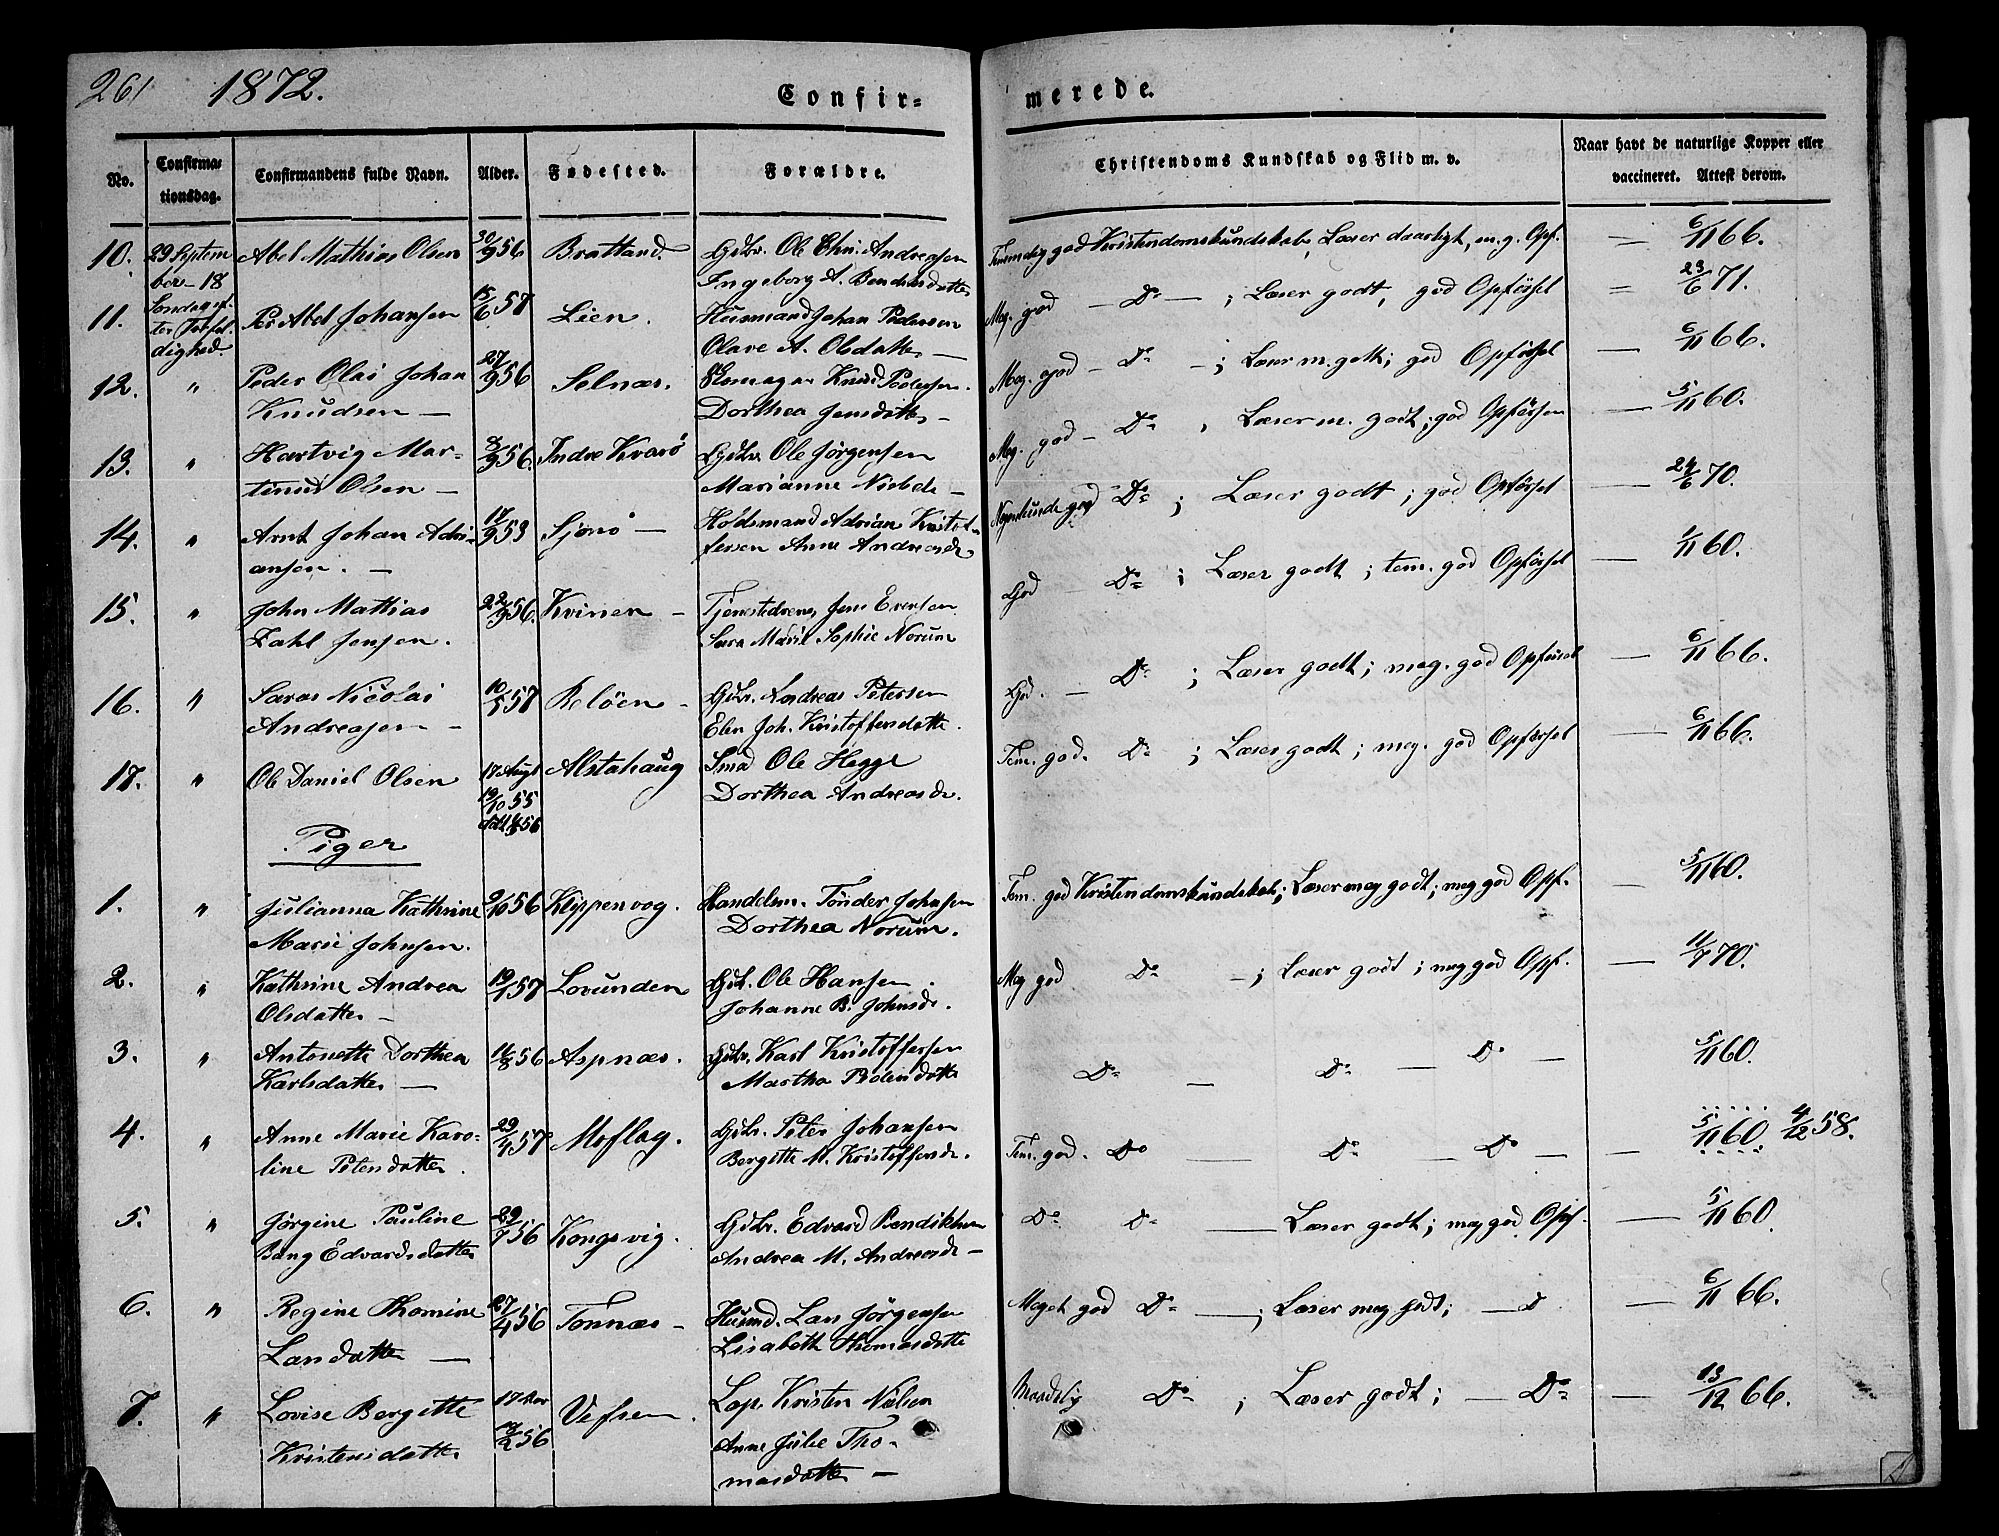 261 1872.
Confir-
merede.
No.
Confirma-
tionsdag.
Confirmandens fulde Navn.
Alder.
Fødested.
Forældre.
Christendoms Kundskab og Flid m. v.
Naar havt de naturlige Kopper eller
vaccineret. Attest derom.
10. 29 Septem Abel Mathias Olsen 30/9 56 Brattand. Gdbr. Ole Chr. Andreasen god Kristendomskundskab, Læser daarligt, m. g. Opf. = 6/11 66.
ber - 18 Ingeborg A. Bendiksdatter
11. Søndag ef- Per Abel Johansen 15/6 57 Lien. Husmand Johan Pedersen Meg. god - Do - ; Læser godt, god Opførsel = 23/6 71.
ter Trefol- Olave A. Olsdatter -
dighed.
12. " Peder Olai Johan 27/9 56 Selnæs. Knud Pedersen. Meg. god - Do - ; Læser m. godt; god Opførsel - 6/11 66.
Knudsen - Dorthea Jensdatter -
13. " Hartvig Mar- 8/9 56. Indre Kvarø Gdbr. Ole Jørgensen Meg. god - Do , Læser m. godt, god Opførsen - 5/11 60.
tinus Olsen - Marianne Nielsd. -
14. " Arnt Johan Adri- 17/9 53 Sjonø - Holdsmand Adrian Kristof- god Do ; Læser godt; god Opførsel - 24/6 70.
ansen. - fersen Anne Andreasd.
15. " John Mathias 22/9 56. Kvinen - Tjenestedreng Jens Evensen God - Do ; Læser godt; tem. god Opførsel - 1/11 60.
Dahl Jensen. Sara Marie Sophie Norum
16. " Saras Nicolai 10/5 57 Reløen - Gdbr. Andreas Petersen God. - Do ; Læser godt; meg. god Opførsel - 6/11 66.
Andreasen - Elen Joh. Kristoffersdatter.
17. " Ole Daniel Olsen 17 Aug Alstahaug Smed Ole Hegge Tem. god. Do ; Læser godt; meg. god Opførsel - 6/11 66.
19/10 55 Dorthea Andreasd.
Piger
1. " Julianna Kathrine 9/10 56 Klippenvog. Handelsm. Tønder Johnsen Tem. god Kristendomskundskab; Læser meg godt; meg god Opf. - 5/11 60.
Marie Johnsen. Dorthea Norum.
2. " Kathrine Andrea 19/1 57 Lovunden Gdbr. Ole Hansen. Meg god Do -; Læser godt; meg god Opf. - 11/7 70.
Olsdatter - Johanne B. Johnsd.
3. " Antonette Dorthea 14/8 56 Aspnæs. Gdbr. Karl Kristoffersen Do - Do - Do - 5/11 60.
Karlsdatter - Martha Pedersdatter
4. " Anne Marie Karo- 29/1 57 Moflag. Gdbr. Peter Johansen Tem. god. Do - Do - Do - - 5/11 60. 4/12 58.
line Petersdatter. Bergitte M. Kristoffersd.
5. " Jørgine Pauline 29/7 56 Kongsvig. Gdbr. Edvard Bendiksen Do Do - Læser godt; meg god Opf. - 5/11 60.
Bang Edvardsdatter Andrea M. Andreasd. -
6. " Regine Thomine 27/4 56 Tonnæs - Husmd. Lars Jørgensen Meget god Do - ; Læser meg godt; - D - 6/11 66.
Larsdatter - Lisabeth Thomasdatter
7. " Lovise Bergitte Vefsen. Lap. Kristen Nielsen Maadelig Do ; Læser godt; - Do - 13/12 66.
Kristensdatter 56 Anne Julie Tho-
masdatter -